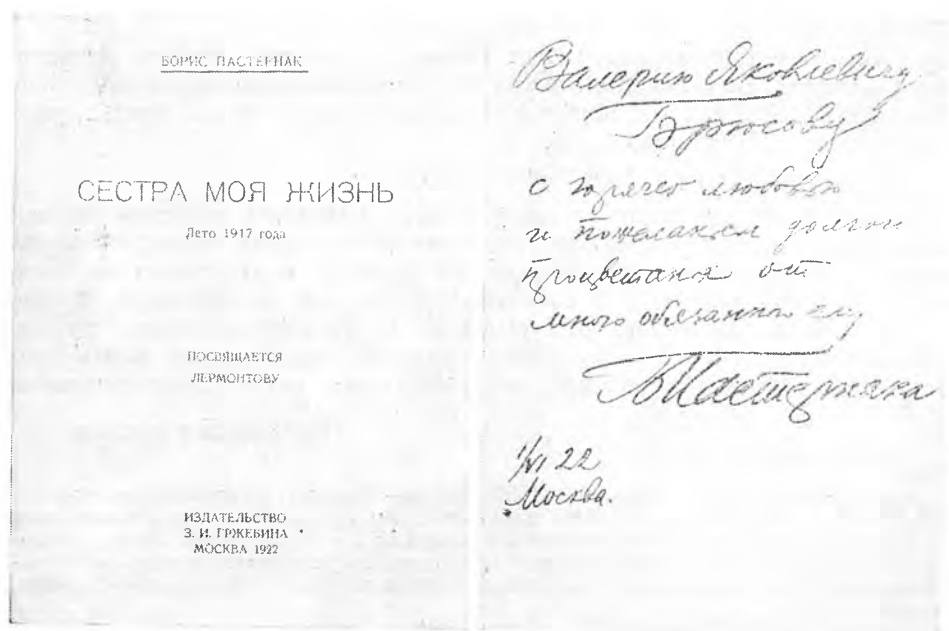 БОРИС ПАСТЕРНАК
СЕСТРА МОЯ ЖИЗНЬ
Лето 1917 года
ПОСВЯЩАЕТСЯ
ЛЕРМОНТОВУ
ИЗДАТЕЛЬСТВО
З. И. ГРЖЕБИНА
МОСКВА 1922
Валерию Яковлевичу
Брюсову
с горячей любовью
и пожеланьем долгого
процветания от
много обязанного ему
БПастернака
1/VI 22
Москва.